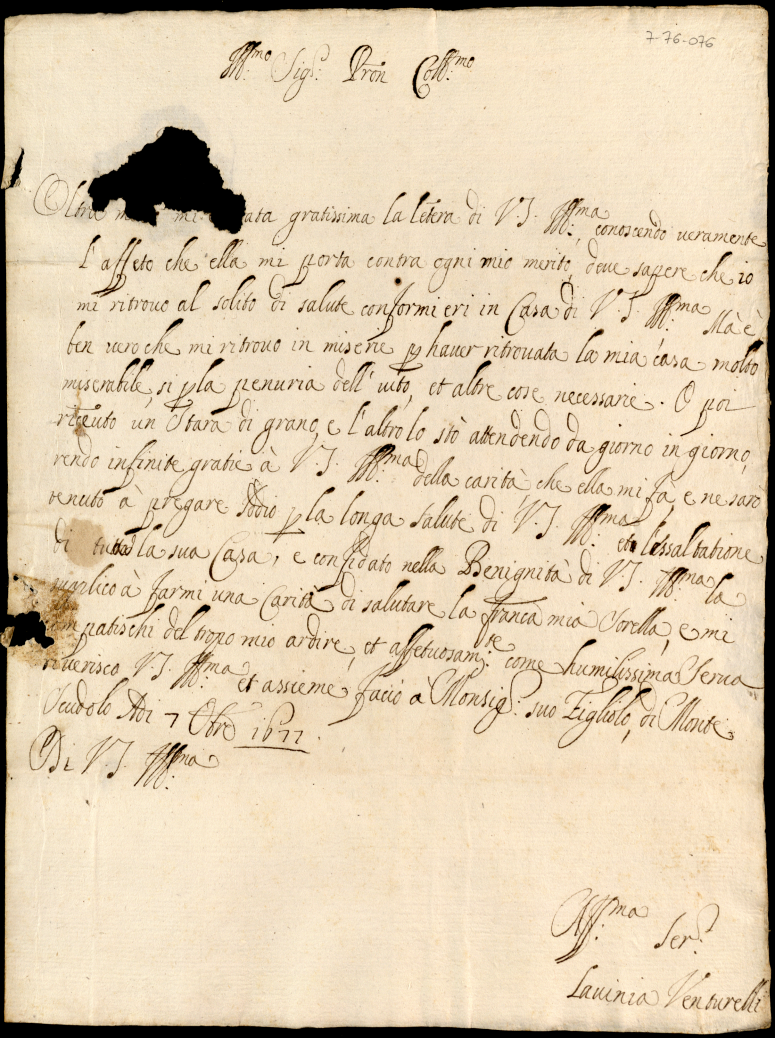 7-76-076
Ill.mo Sig.r Pron Coll.mo
Oltre mi ata gratissima la letera di V.S. Ill.ma, conoscendo veramente
l'affeto che ella mi porta contra ogni mio merito, deve sapere che io
mi ritrovo al solito di salute conformi eri in Casa di V.S. Ill.ma Mà è
ben vero che mi ritrovo in miserie p haver ritrovata la mia casa molto
miserabile, si p la penuria dell' vito, et altre cose necessarie. O poi
riceuto un Stara di grano, e l'altro lo stò attendendo da giorno in giorno,
rendo infinite gratie à V.S. Ill.ma della carità che ella mi fa, e ne sarò
tenuto à pregare Iddio p la longa salute di V.S. Ill.ma et l'essaltatione
di tutta la sua Casa, e confidato nella Benignità di V.S. Ill.ma la
suplico à farmi una Carità di salutare la franca mia Sorella, e mi
compatischi del tropo mio ardire, et affetuosam.te come humilissima Serva
riverisco V.S. Ill.ma et assieme facio à Monsig.r suo Figliolo, di Monte
Scudolo Adi 7 Obre 1677.
Di V.S. Ill.ma
Aff.ma Ser.
Lavinia Venturelli